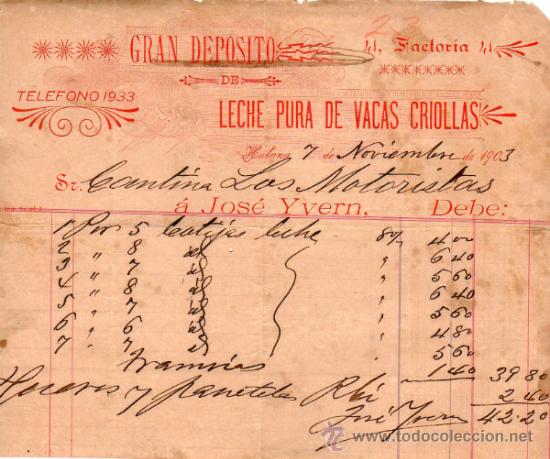 23
GRAN DEPÓSITO 41, Factoria 41
DE
TELEFONO 1933
LECHE PURA DE VACAS CRIOLLAS
Habana 7 de Noviembre de 1903
Sr. Cantina Los Motoristas
á José Yvern, Debe:
1 Por 5 botijas leche 80/ 4 00
2 " 8 id " 6 40
3 " 7 id " 5 60
4 " 8 id " 6 40
5 " 7 id " 5 60
6 " 6 id " 4 80
7 " 7 id " 5 60
Tranvias 1 40 39 80
Huevos y panetelas 2 40
Rbí 42.20
José Yvern
www.todocoleccion.net